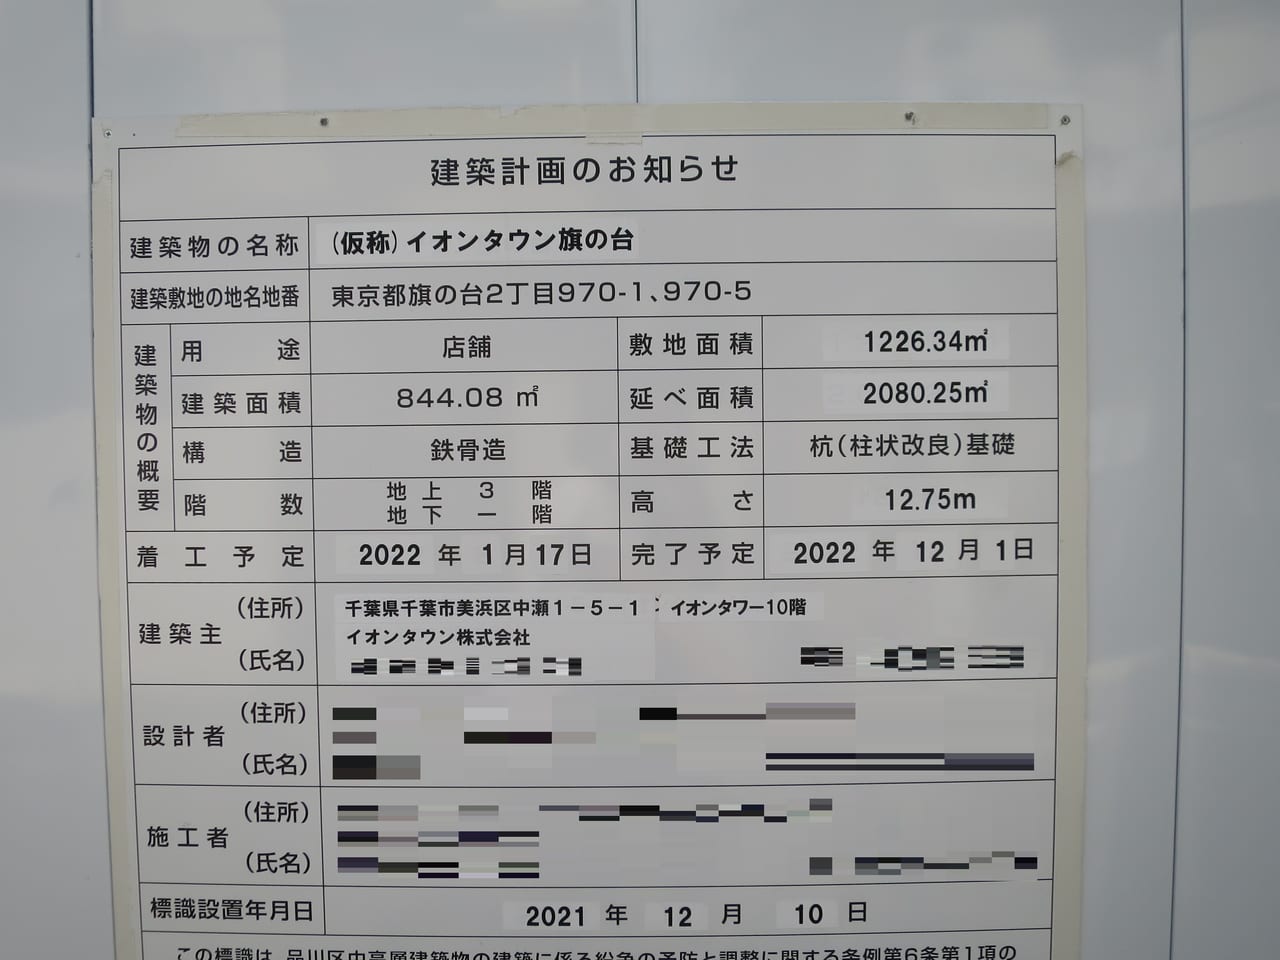 建築計画のお知らせ
建築物の名称 (仮称)イオンタウン旗の台
建築敷地の地名地番 東京都旗の台2丁目970-1、970-5
建築物の概要
用途 店舗 敷地面積 1226.34㎡
建築面積 844.08 ㎡ 延べ面積 2080.25㎡
構造 鉄骨造 基礎工法 杭(柱状改良)基礎
階数 地上 3 階 高さ 12.75m
地下 ー 階
着工予定 2022 年 1月17日 完了予定 2022 年 12月 1日
建築主 (住所) 千葉県千葉市美浜区中瀬1-5-1 イオンタワー10階
イオンタウン株式会社
(氏名)
設計者 (住所)
(氏名)
施工者 (住所)
(氏名)
標識設置年月日 2021 年 12 月 10 日
この標識は、品川区中高層建築物の建築に係る紛争の予防と調整に関する条例第6条第1項の